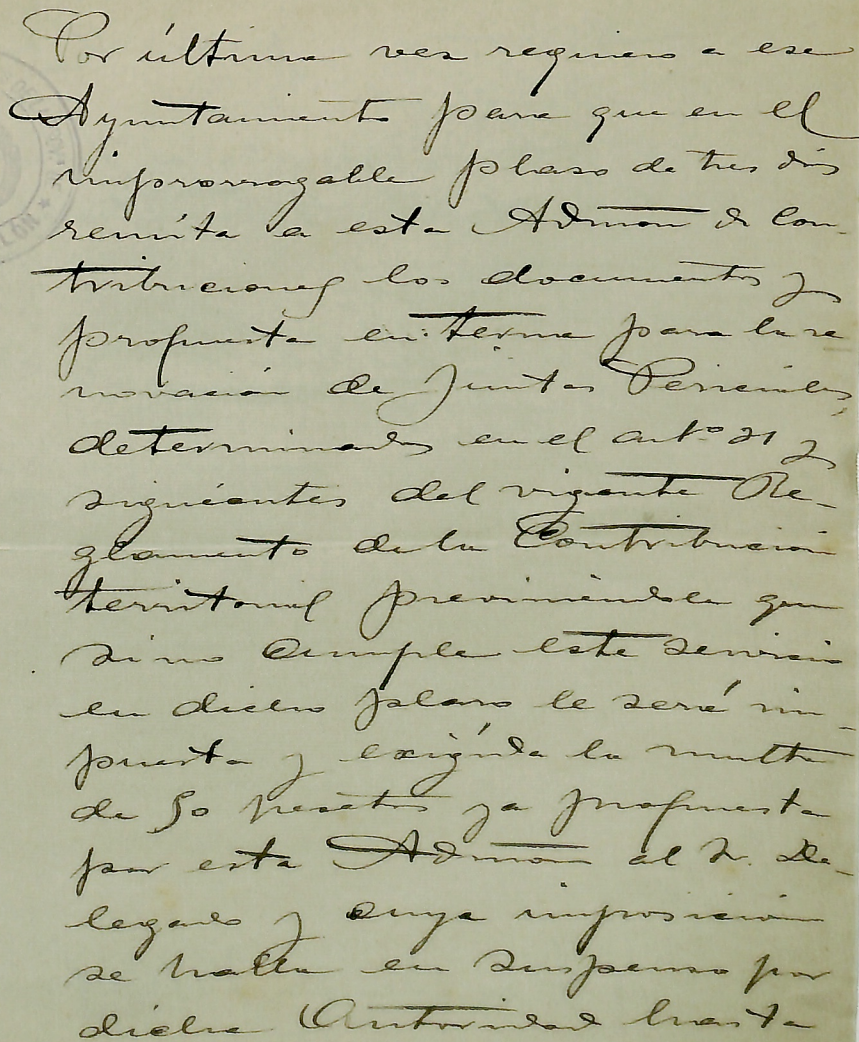 Por última vez requiero a ese
Ayuntamiento para que en el
improrrogable plazo de tres dias
remita a esta Admon de Con-
tribuciones los documentos y
propuesta en terna para la re
novación de Juntas Periciales
determinadas en el artº 31 y
siguientes del vigente Re-
glamento de la Contribucion
territorial previniendole que
si no cumple este servicio
en dicho plazo le será im-
puesta y exigida la multa
de 50 pesetas ya propuesta
por esta Admon al Sr. De-
legado y cuya imposición
se halla en suspenso por
dicha Autoridad hasta